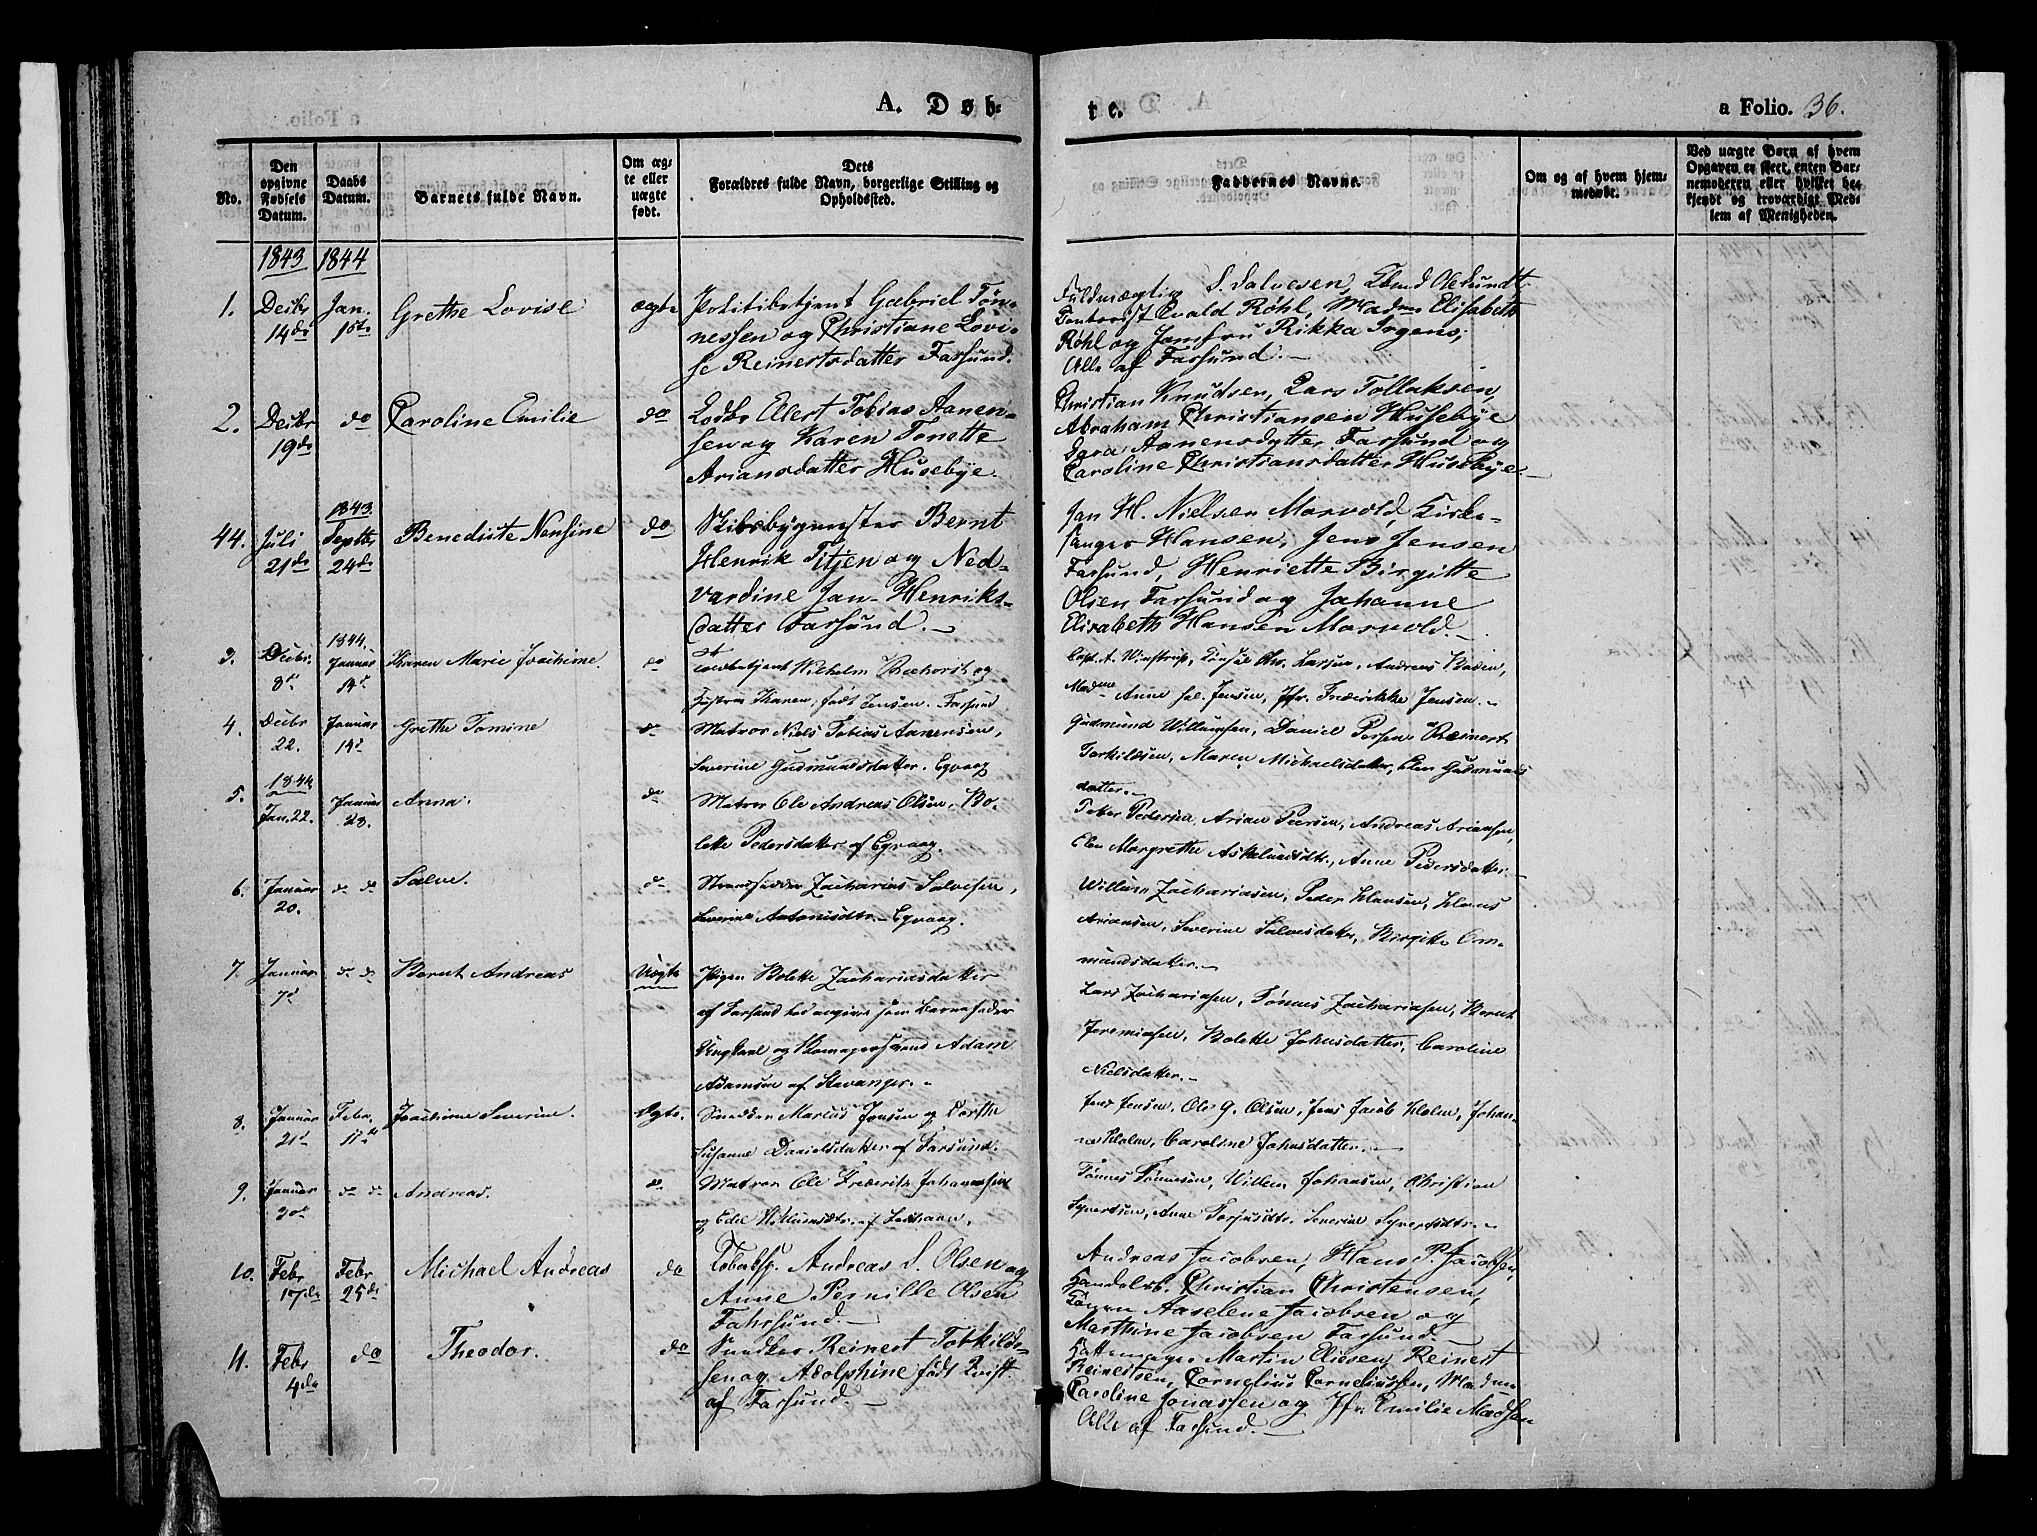 A. Døb-
te.
a Folio. 36.
No.
Den opgivne Fødsels Datum.
Daabs Datum.
Barnets fulde Navn.
Om ægte eller uægte født.
Dets Forældres fulde Navn, borgerlige Stilling og Opholdssted.
Faddernes Navne.
Om og af hvem hjemmedøbt.
Ved uægte Børn af hvem Opgaven er skeet, enten Barnemoderen eller hvilket bekjendt og troværdigt Medlem af Menigheden.
1843 1844
1. Decbr 14de Jan. 1ste Grethe Lovise ægte
Politibetjent Gabriel Tøn-
nessen og Christiane Lovi-
se Reinertsdatter Farsund.
Fuldmægtig S. Salvesen,
Contorist Evald Røhl, Madm Elisabeth
Røhl og Jomfru Rikka
Alle af Farsund.
2. Decbr 19de do Caroline Emilie do
Lods Ellert Tobias Aanen-
sen og Karen Tonette
Ariansdatter Husebye
Christian Knudsen, Lars Tollaksen,
Abraham Christiansen Husebye
Sara Aanensdatter Farsund og
Caroline Christiansdatter Husebye
44. Juli 21de 1843. Septbr 24de Benedicte Nensine do
Skibsbygmester Bernt
Henrik Titjen og Ned-
vardine Jan-Henriks-
datter Farsund.
Jan H. Nielsen Marvold, Kirke-
sanger Hansen, Jens Jensen
Farsund, Henriette Birgitte
Olsen Farsund og Johanne
Elisabeth Hansen Marvold.
3. Decbr. 8de 1844. Januar 14de Karen Marie Joachime. do
Toldbetjent Wilhelm og
Hustru Karen, født Jensen. Farsund
Capt. A. Chr. Larsen, Andreas
Madme Anne sal. Jensen, Jfr. Frederikke Jensen.
4. Decbr 22. Januar 14de Grethe Tomine do
Matros Niels Tobias Aanensen,
Severine Gudmundsdatter. Egvaag
Gudmund Willumsen, Daniel Persen, Reinert
Torkildsen, Maren Michaelsdatter, Elen Gudmunds
datter.
5. 1844 Jan. 22. Januar 28. Anna. do
Matros Ole Andreas Olsen, Bo-
lette Pedersdatter af Egvaag.
Peder Pedersen, Arian Peersen, Andreas Ariansen,
Elen Margrethe Askelundsdtr., Anne Pedersdatter.
6. Januar 20. do do Salve. do
Strandsidder Zacharias Salvesen,
Severine Antonisdtr. Egvaag.
Willum Zachariasen, Peder Klausen, Klaus
Ariansen, Severine Salvesdatter, Birgitte Om-
mundsdatter.
7. Januar 7de do do Bernt Andreas Uægte
Pigen Bolette Zachariasdatter
af Farsund har angivet som Barnefader
Ungkarl og Adam
Adamsen af Stavanger.
Lars Zachariasen, Tønnes Zachariasen, Bernt
Jeremiasen, Bolette Johnsdatter, Caroline
Nielsdatter.
8. Januar 21de Febr. 11te Joachime Severine. Ægte.
Snedker Marius Jensen og Dorthe
Susanne Danielsdatter af Farsund.
Jens Jensen, Ole G. Olsen, Jens Jacob Holm, Johan-
ne Holm, Caroline Johnsdatter.
9. Januar do do Andreas. do
Matros Ole Frederik Johannesen
og Edel Willumsdtr. af
Tønnes Tønnesen, Willem Johansen, Christian
Syvertsen, Anne Torjusdtr. Severine Syvertsdtr.
10. Febr 17de Febr 25de Michael Andreas do
Tobaksp. Andreas S. Olsen og
Anne Pernille Olsen
Fahrsund.
Andreas Jacobsen, Hans P. Jacobsen,
Handelsb. Christian Christensen,
Aaselene Jacobsen og
Marthine Jacobsen Farsund.
11. Febr 4de do Theodor. do
Snedker Reinert Torkilds-
sen og Adolphine født Qvist
af Farsund.
Hattemager Martin Eliesen, Reinert
Reinertsen, Cornelius Corneliussen, Madam
Caroline Jonassen og Jfr. Emilie Madsen
Alle af Farsund.